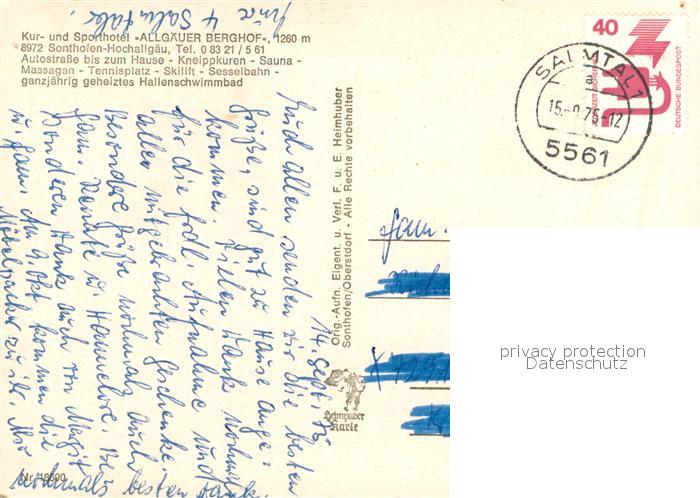 Eure 4 Salmtaler.
Kur- und Sporthotel »ALLGÄUER BERGHOF«, 1260 m
8972 Sonthofen-Hochallgäu, Tel. 0 83 21 / 5 61
Autostraße bis zum Hause - Kneippkuren - Sauna -
Massagen - Tennisplatz - Skilift - Sesselbahn -
ganzjährig geheiztes Hallenschwimmbad
14. Sept. 75
Euch allen senden wir die besten
Grüße, sind gut zu Hause ange-
kommen. Vielen Dank nochmals
für die frdl. Aufnahme und
allen mitgebrachten Geschenke.
Besondere Grüße nochmals auch
Fam. Renate u. Hannelore. Be-
sonderen Dank auch von Margit
u. Fam. Am 9. Okt. kommen die
Möbelpacker zu ihr.
nochmals besten Dank.
Nr. 18690
Orig.-Aufn. Eigent. u. Verl. F. u. E. Heimhuber
Sonthofen/Oberstdorf - Alle Rechte vorbehalten
Heimhuber
Karte
40
DEUTSCHE BUNDESPOST
SALMTAL 1
a
15.-9.75-12
5561
Fam.
privacy protection
Datenschutz